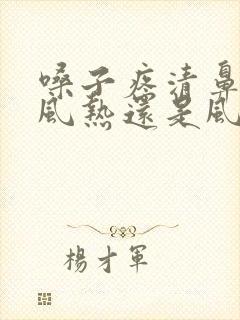 嗓子疼清鼻
風熱還是風
楊才軍